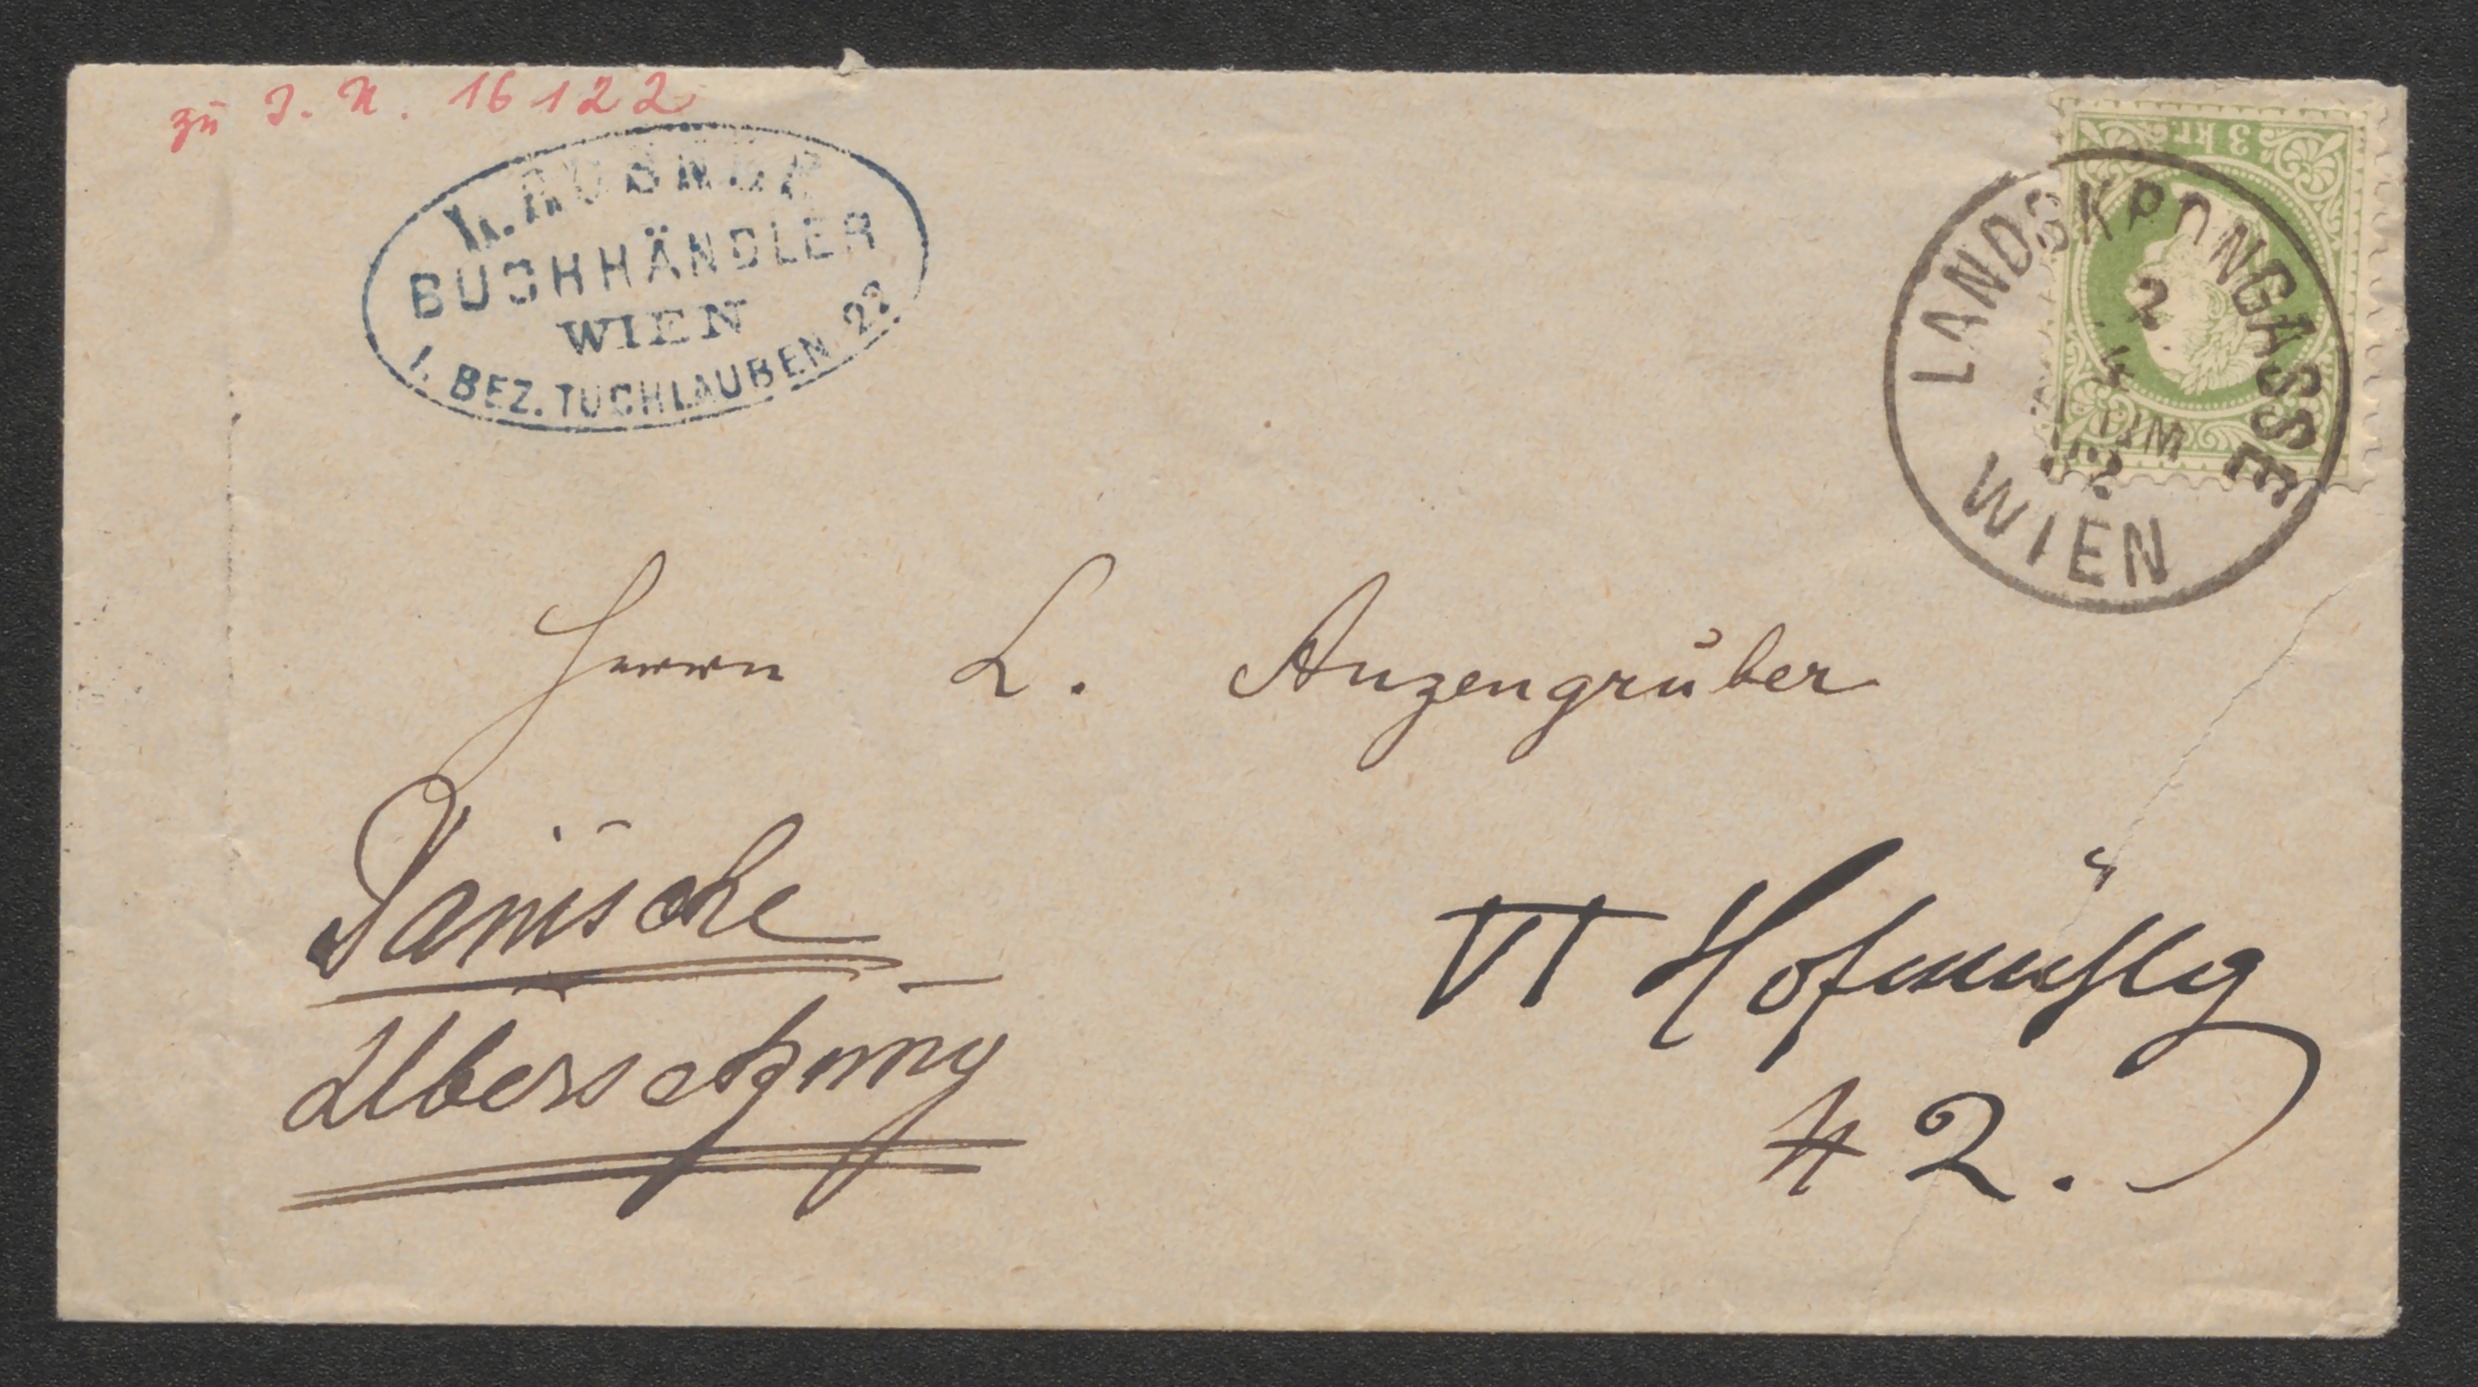 zu I. N. 16122
L. ROSNER
BUCHHÄNDLER
WIEN
I. BEZ. TUCHLAUBEN 22.
3 kr.
LANDSKRONGASSE
2
4
NM
WIEN
Herrn L. Anzengruber
Dänische
Übersetzung
VI Hofmühlg
# 2.